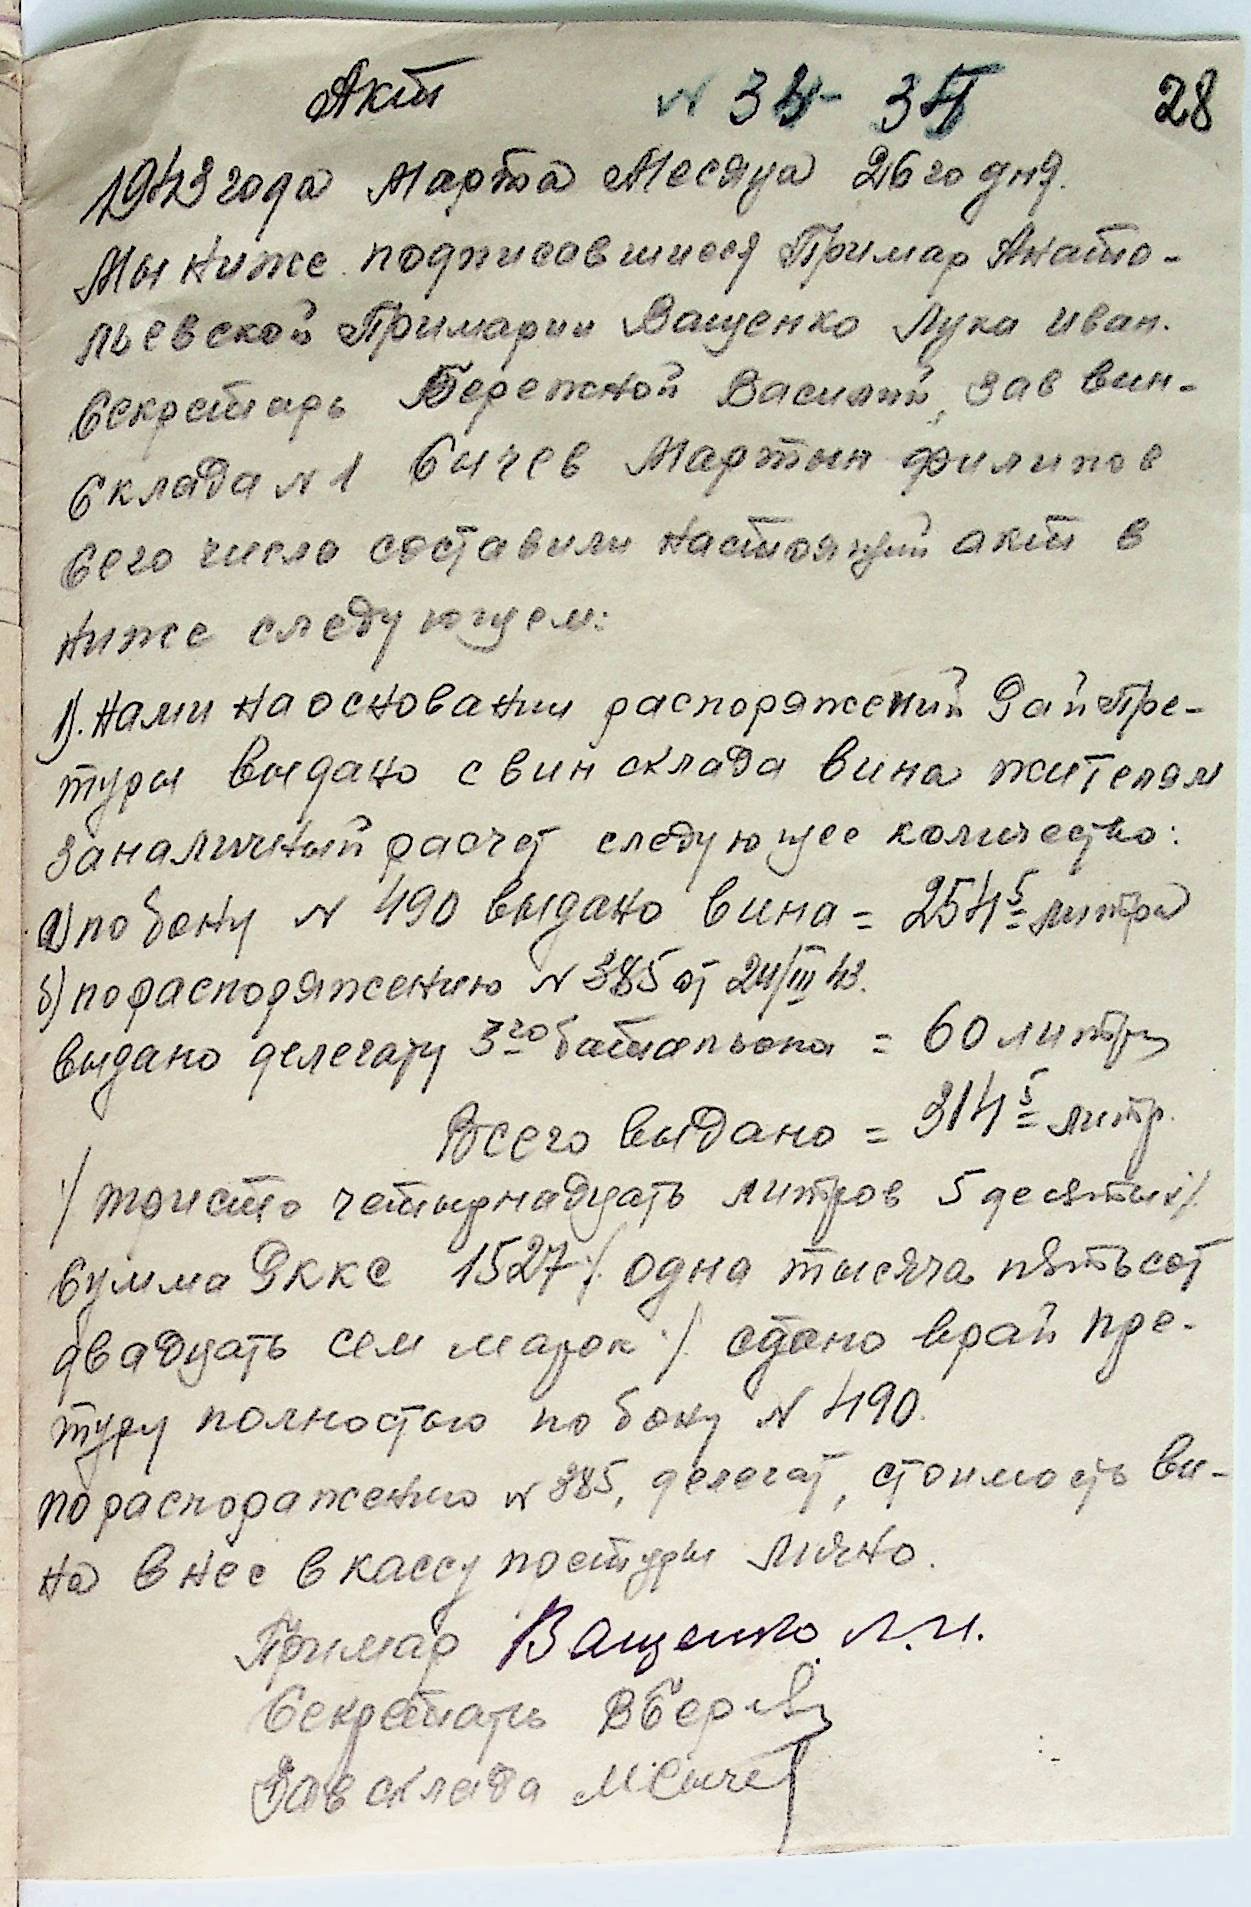 Акт № 34- 34 28
1943 года Марта Месяца 26го дня.
Мы ниже подписавшиеся Примар Анато-
льевской Примарии Ващенко Лука Иван.
Секретарь Бережной Василий, зав вин-
склада № 1 Сычев Мартын Филипов
сего число составили настоящий акт в
ниже следующем:
1). Нами на основании распоряжений Рай Пре-
туры выдано с вин склада вина жителям
за наличный расчет следующее количество:
а) по бону № 490 выдано вина = 254 5 литра
б) по распоряжению № 385 от 24/III 43.
выдано делегату 3го батальона = 60 литр
Всего выдано = 314 5 литр.
/ триста четырнадцать литров 5 десятых /.
Сумма Рккс 1527 /. одна тысяча пятьсот
двадцать сем марок ./. сдано в рай пре-
туру полностью по бону № 490.
по распоражению № 385, делегат, стоимость ви-
на внес в кассу претуры лично.
Примар Ващенко Л.И.
Секретарь В Береж
Зав склада М Сычев